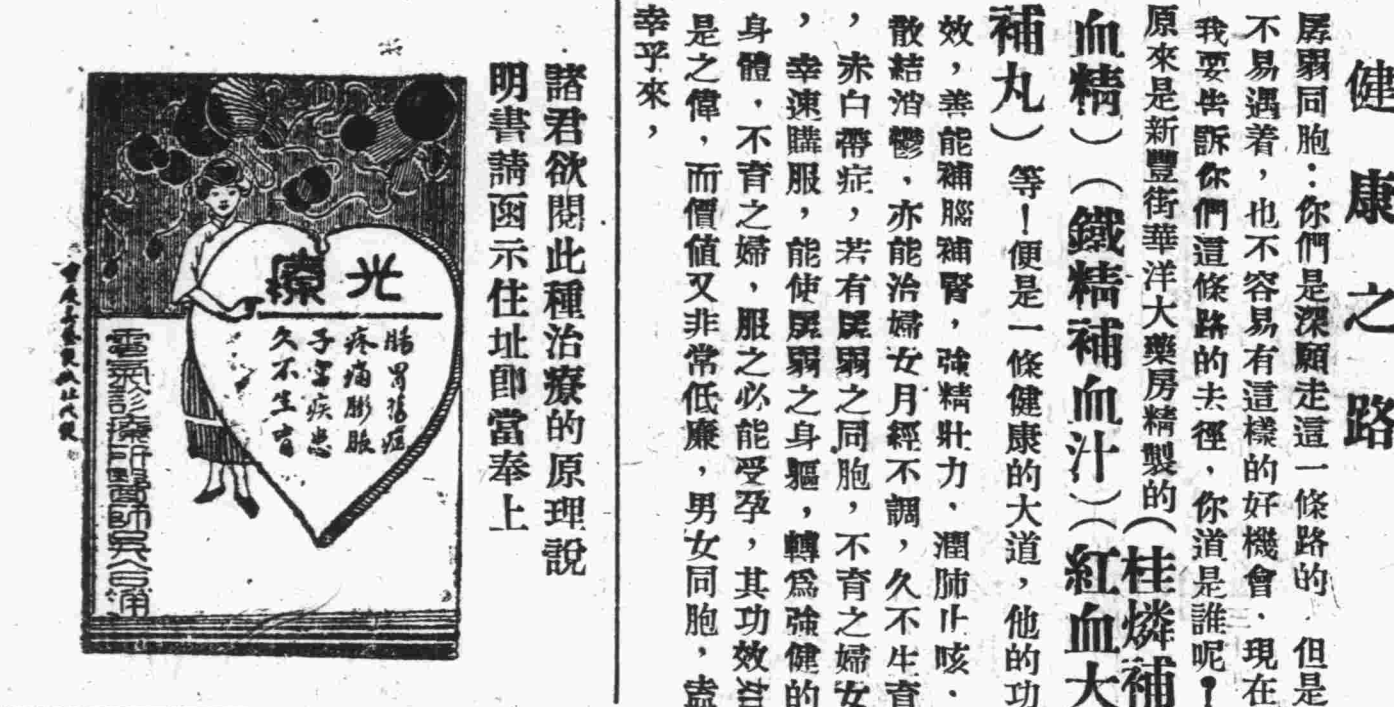 健康之路
孱弱同胞：你們是深願走這一條路的．但是
不易遇着，也不容易有這樣的好機會．現在
我要告訴你們這條路的去徑，你道是誰呢？
原來是新豐街華洋大藥房精製的（桂燐補
血精）（鐵精補血汁）（紅血大
補丸）等！便是一條健康的大道，他的功
效，善能補腦補腎，強精壯力．潤肺止咳．
散結消鬱，亦能治婦女月經不調，久不生育
，赤白帶症，若有孱弱之同胞，不育之婦女
，幸速購服，能使孱弱之身軀，轉爲強健的
身體．不育之婦．服之必能受孕，其功效若
是之偉，而價值又非常低廉，男女同胞，盍
幸乎來，
諸君欲閱此種治療的原理說
明書請函示住址即當奉上
光療
腸胃
疼痛膨脹
子宮疾患
久不生育
電氣診療所醫師吳合浦